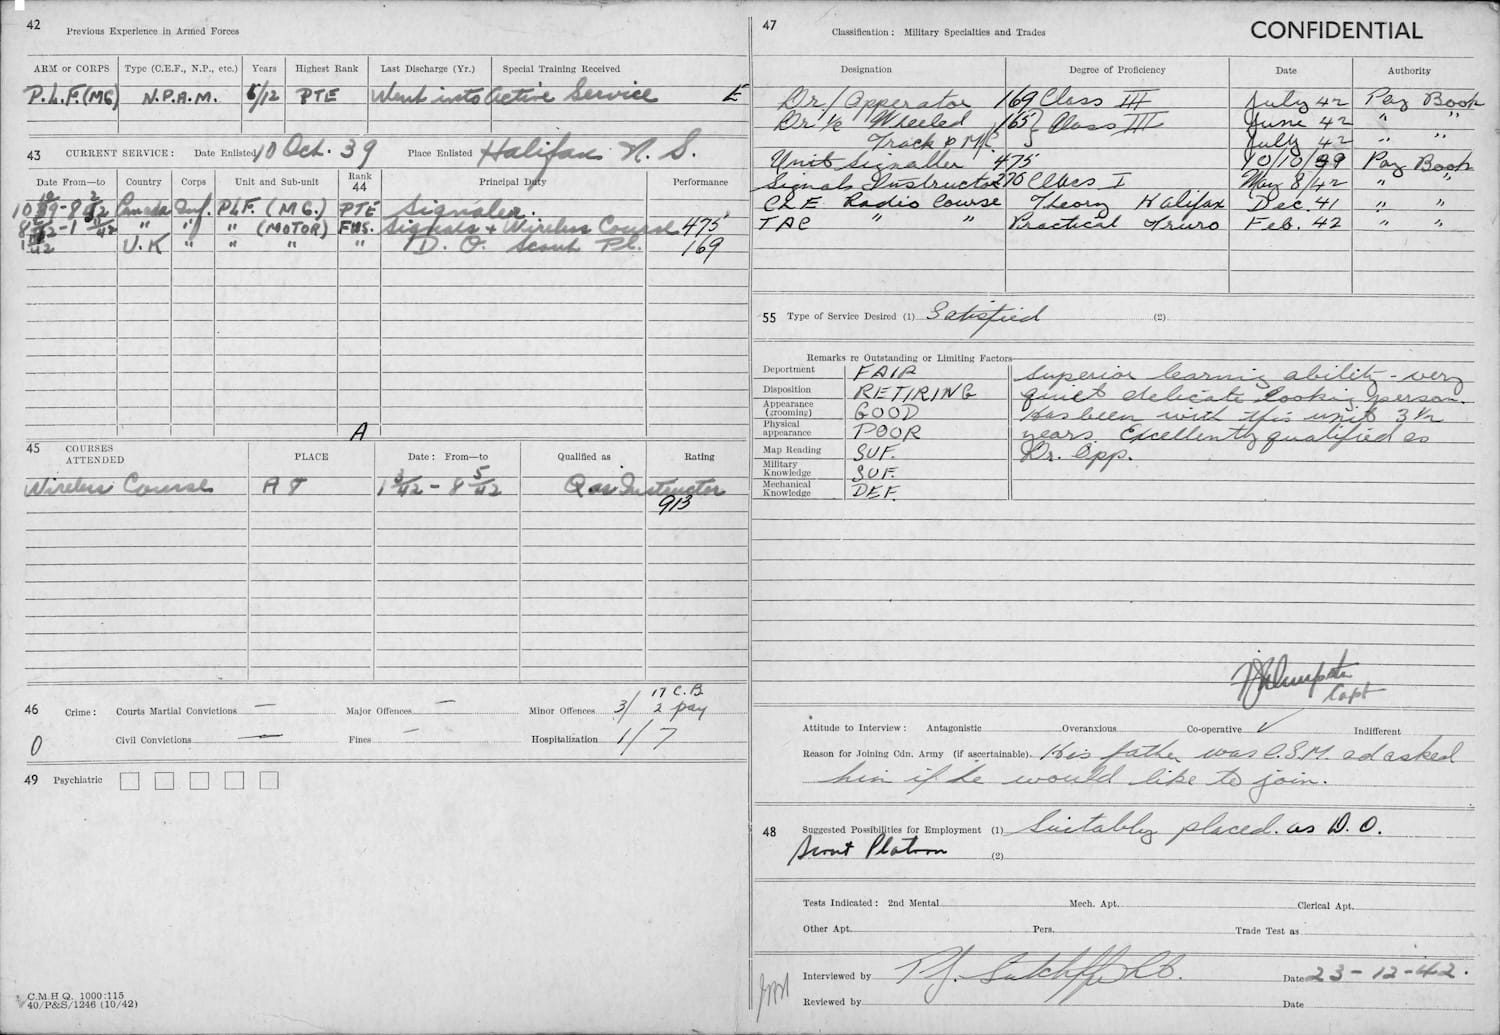 42 Previous Experience in Armed Forces
ARM or CORPS Type (C.E.F., N.P., etc.) Years Highest Rank Last Discharge (Yr.) Special Training Received
P.L.F.(MG) N.P.A.M. 6/12 PTE Went into Active Service E
43 CURRENT SERVICE: Date Enlisted 10 Oct. 39 Place Enlisted Halifax N. S.
Date From—to Country Corps Unit and Sub-unit Rank 44 Principal Duty Performance
10 10/39 - 8 2/42 Canada Inf. P.L.F. (M.G.) PTE Signaler.
" " " (MOTOR) Signals + Wireless Course 475
U.K " " " " D. O. Scout Pl. 169
A
45 COURSES ATTENDED PLACE Date: From—to Qualified as Rating
Wireless Course A 8 1 3/42 - 8 5/42 Q as Instructor
913
46 Crime: Courts Martial Convictions — Major Offences — Minor Offences 3/ 17 C.B 2 pay
0 Civil Convictions — Fines — Hospitalization 1/7
49 Psychiatric
C.M.H.Q. 1000:115
40/P&S/1246 (10/42)
47 Classification: Military Specialties and Trades CONFIDENTIAL
Designation Degree of Proficiency Date Authority
Dr./Opperator 169 Class III July 42 Pay Book
Dr i/c Wheeled 165 } Class III June 42 " "
Track & M/C July 42 " "
Unit Signaller 475 10/10/39 Pay Book
Signals Instructor 270 Class I May 8/42 " "
CLE Radio Course Theory Halifax Dec. 41 " "
TAC " " Practical Truro Feb. 42 " "
55 Type of Service Desired (1) Satisfied (2)
Remarks re Outstanding or Limiting Factors
Deportment FAIR superior learning ability - very
Disposition RETIRING quiet delicate looking person.
Appearance (grooming) GOOD Has been with this unit 3 1/2
Physical appearance POOR years. Excellently qualified as
Map Reading SUF. Dr. Opp.
Military Knowledge SUF.
Mechanical Knowledge DEF.
Capt
Attitude to Interview: Antagonistic Overanxious Co-operative ✓ Indifferent
Reason for Joining Cdn. Army (if ascertainable). His father was C.S.M. ad asked
him if he would like to join.
48 Suggested Possibilities for Employment (1) Suitably placed. as D. O.
Scout Platoon (2)
Tests Indicated: 2nd Mental Mech. Apt. Clerical Apt.
Other Apt. Pers. Trade Test as
Interviewed by P.J. Sutcliffe Lt. Date 23-12-42.
Reviewed by Date